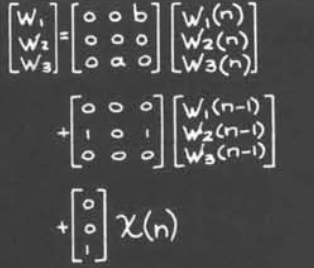 [W₁ W₂ W₃] = [0 0 b; 0 0 0; 0 a 0] [W₁(n) W₂(n) W₃(n)]
+ [0 0 0; 1 0 1; 0 0 0] [W₁(n-1) W₂(n-1) W₃(n-1)]
+ [0 0 1] x(n)